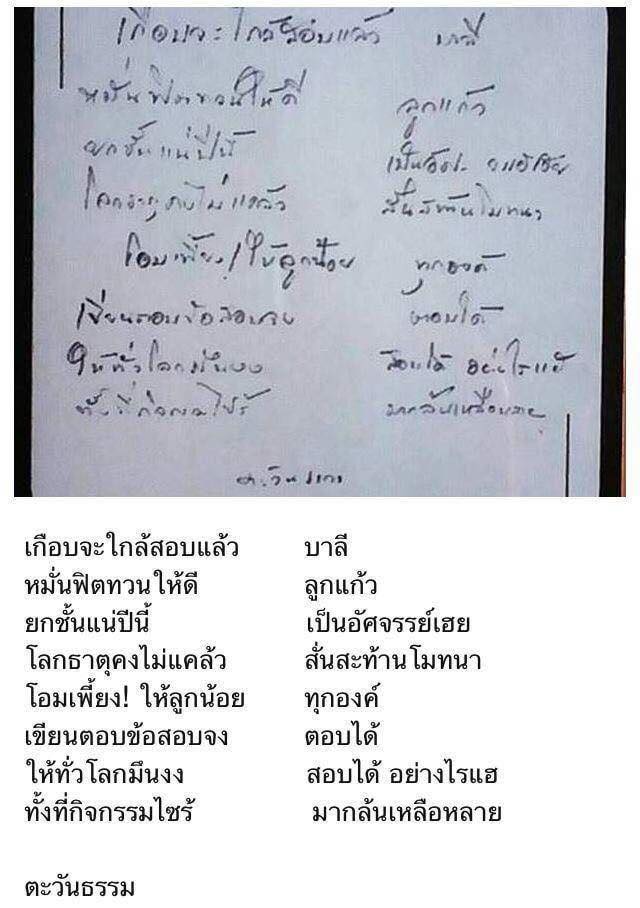 เกือบจะใกล้สอบแล้ว บาลี
หมั่นฟิตทวนให้ดี ลูกแก้ว
ยกชั้นแน่ปีนี้ เป็นอัศจรรย์เฮย
โลกธาตุคงไม่แคล้ว สั่นสะท้านโมทนา
โอมเพี้ยง! ให้ลูกน้อย ทุกองค์
เขียนตอบข้อสอบจง ตอบได้
ให้ทั่วโลกมึนงง สอบได้ อย่างไรแฮ
ทั้งที่กิจกรรมไซร้ มากล้นเหลือหลาย
ตะวันธรรม
เกือบจะใกล้สอบแล้ว บาลี
หมั่นฟิตทวนให้ดี ลูกแก้ว
ยกชั้นแน่ปีนี้ เป็นอัศจรรย์เฮย
โลกธาตุคงไม่แคล้ว สั่นสะท้านโมทนา
โอมเพี้ยง! ให้ลูกน้อย ทุกองค์
เขียนตอบข้อสอบจง ตอบได้
ให้ทั่วโลกมึนงง สอบได้ อย่างไรแฮ
ทั้งที่กิจกรรมไซร้ มากล้นเหลือหลาย
ตะวันธรรม